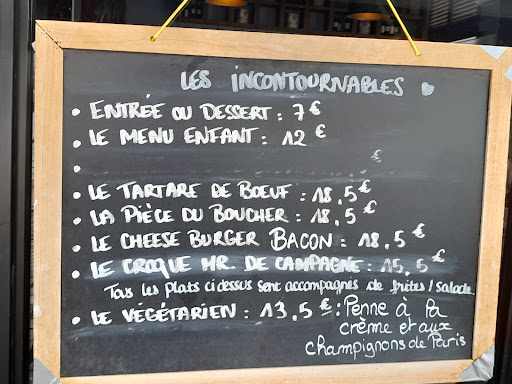 LES INCONTOURNABLES
• ENTRÉE OU DESSERT : 7 €
• LE MENU ENFANT : 12 €
• €
• LE TARTARE DE BOEUF : 18,5 €
• LA PIÈCE DU BOUCHER : 18,5 €
• LE CHEESE BURGER BACON : 18,5 €
• LE CROQUE MR. DE CAMPAGNE : 15,5 €
Tous les plats ci dessus sont accompagnés de frites / salade
• LE VEGÉTARIEN : 13,5 € : Penne à la
crème et aux
champignons de Paris